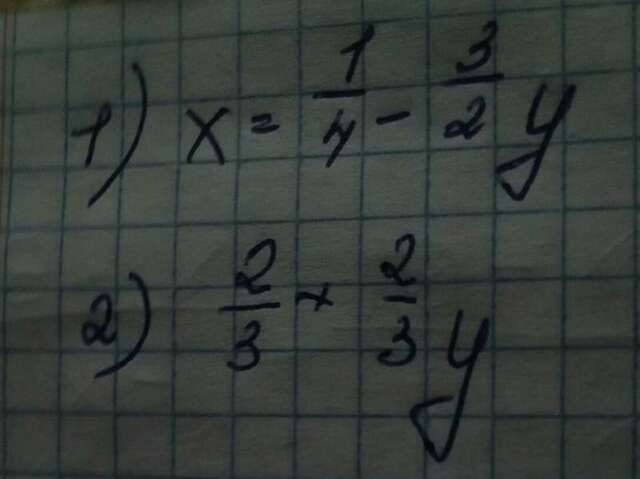 1) x = 1/4 - 3/2 y
2) 2/3 x 2/3 y